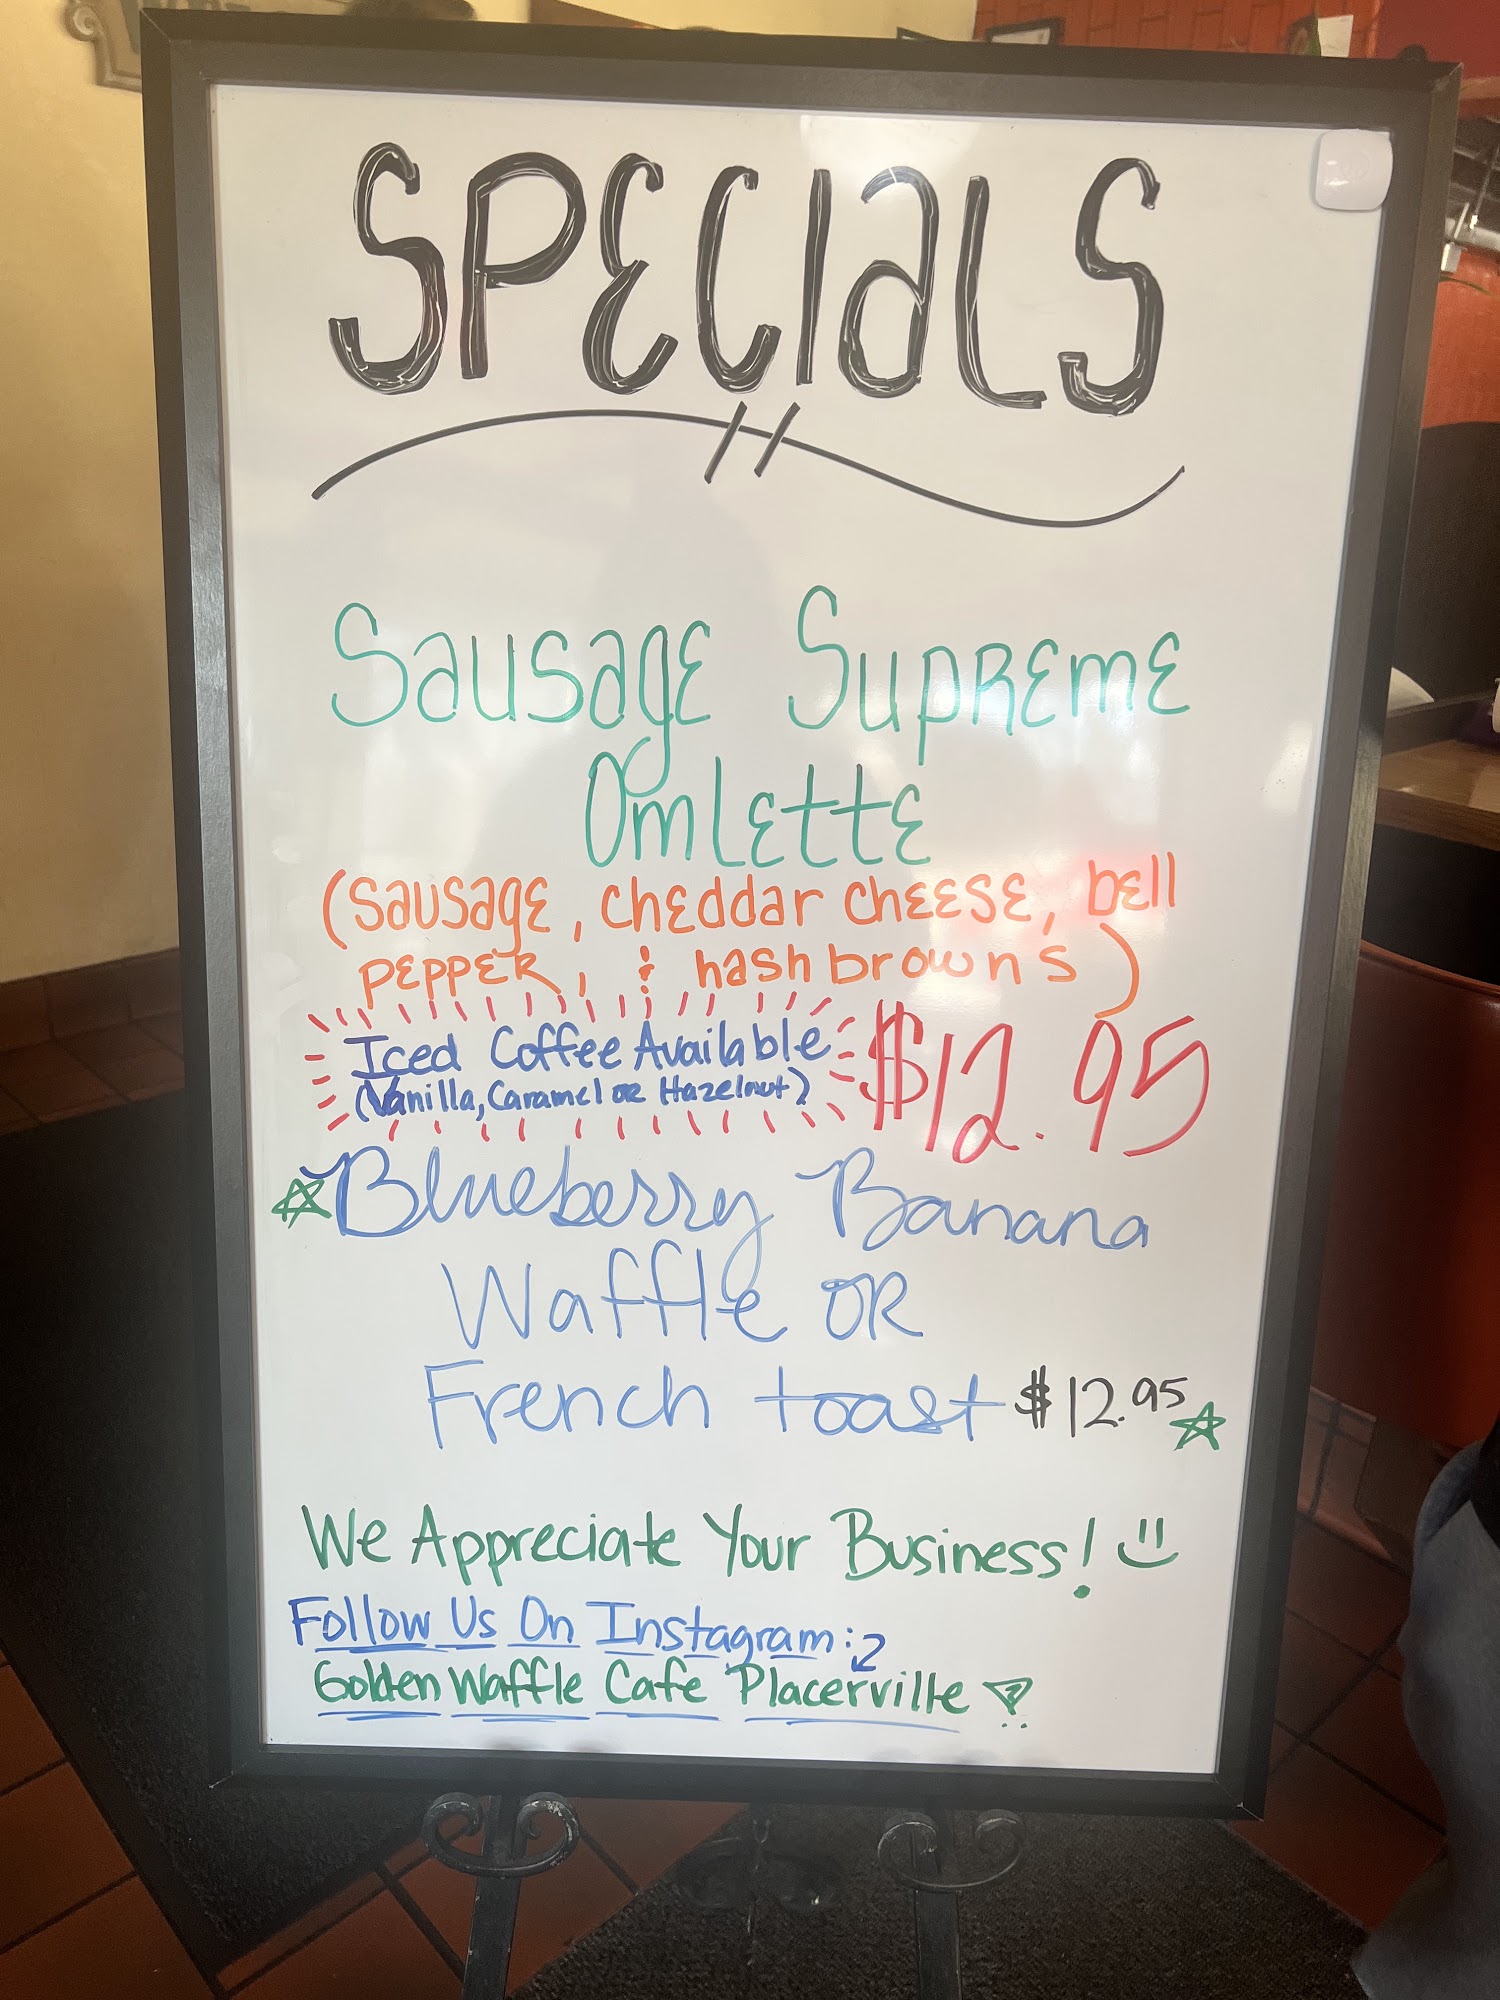 SPECIALS
Sausage Supreme
Omlette
(Sausage, cheddar cheese, bell
pepper, & hashbrowns)
Iced Coffee Available
(Vanilla, Caramel or Hazelnut)
$12.95
Blueberry Banana
Waffle OR
French toast $12.95
We Appreciate Your Business!
Follow Us On Instagram:
Golden Waffle Cafe Placerville